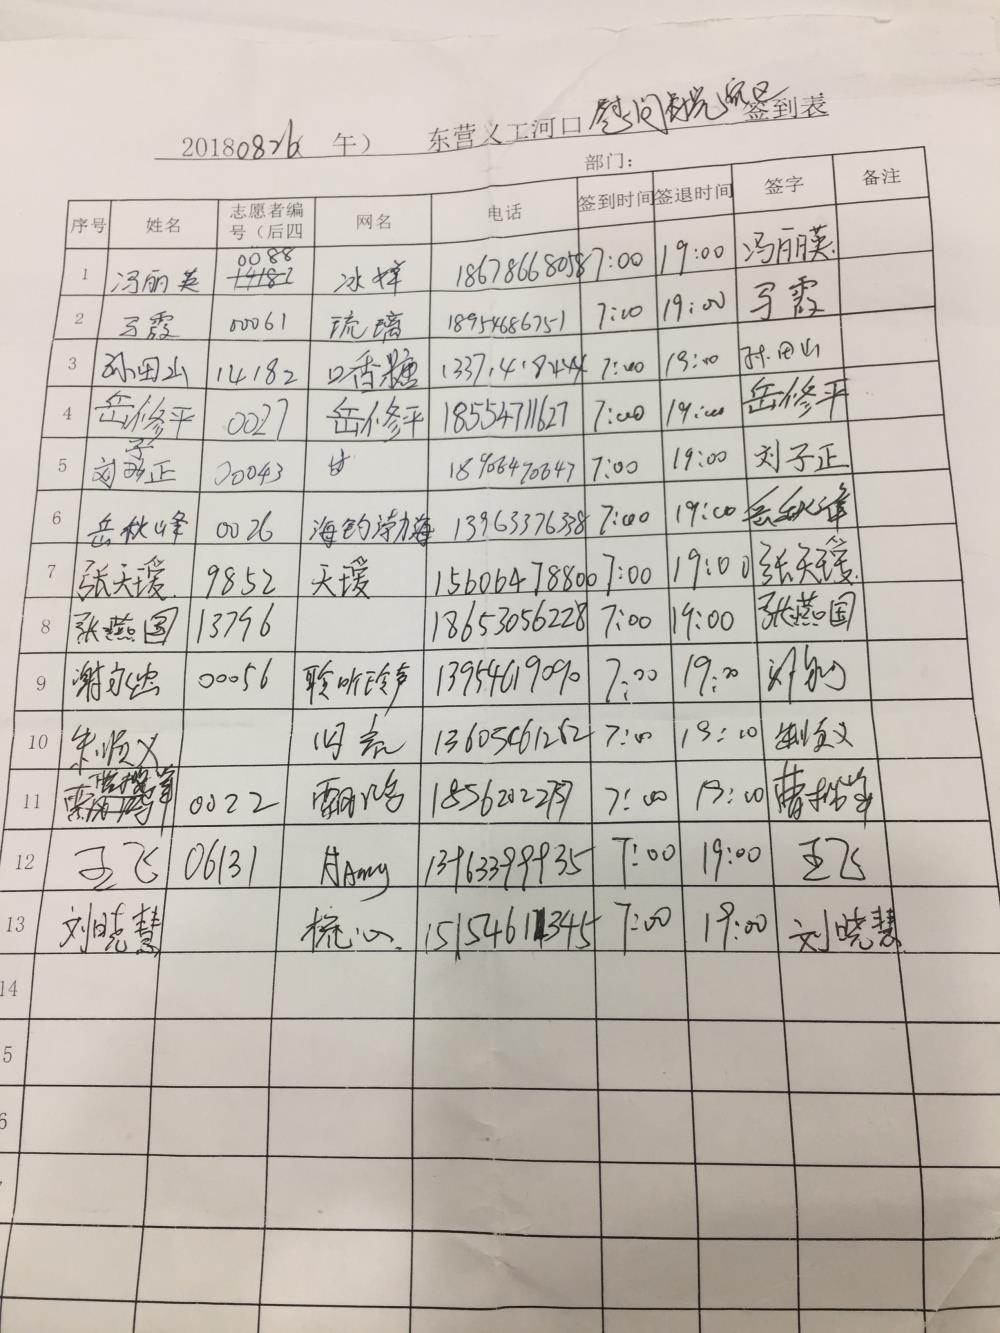 20180826( 午) 东营义工河口慰问 签到表
部门:
序号 姓名 志愿者编号（后四 网名 电话 签到时间 签退时间 签字 备注
1 冯丽英 0088 14182 冰 18678668058 7:00 19:00 冯丽英
2 马霞 00061 琉璃 18954686751 7:00 19:00 马霞
3 孙田山 14182 口香糖 7:00 19:00 孙田山
4 岳修平 0027 岳修平 18554711627 7:00 19:00 岳修平
5 刘子正 00043 甘 18906470647 7:00 19:00 刘子正
6 岳秋峰 0026 海钓渤海 13963376338 7:00 19:00 岳秋峰
7 张天瑷 9852 天瑷 15606478800 7:00 19:00 张天瑷
8 张燕国 13796 18653056228 7:00 19:00 张燕国
9 谢永忠 00056 聆听铃声 13954619090 7:00 19:00
10 朱顺义 13605461262 7:00 19:00 朱顺义
11 0022 7:00 19:00
12 王飞 06131 Amy 13963399935 7:00 19:00 王飞
13 刘晓慧 梳心 7:00 19:00 刘晓慧
14
5
6